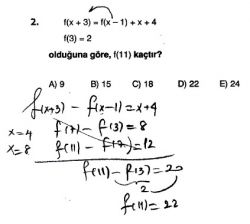 2. f(x + 3) = f(x − 1) + x + 4
f(3) = 2
olduğuna göre, f(11) kaçtır?
A) 9 B) 15 C) 18 D) 22 E) 24
f(x+3) − f(x−1) = x+4
x=4 f(7) − f(3) = 8
x=8 f(11) − f(7) = 12
f(11) − f(3) = 20
2
f(11) = 22